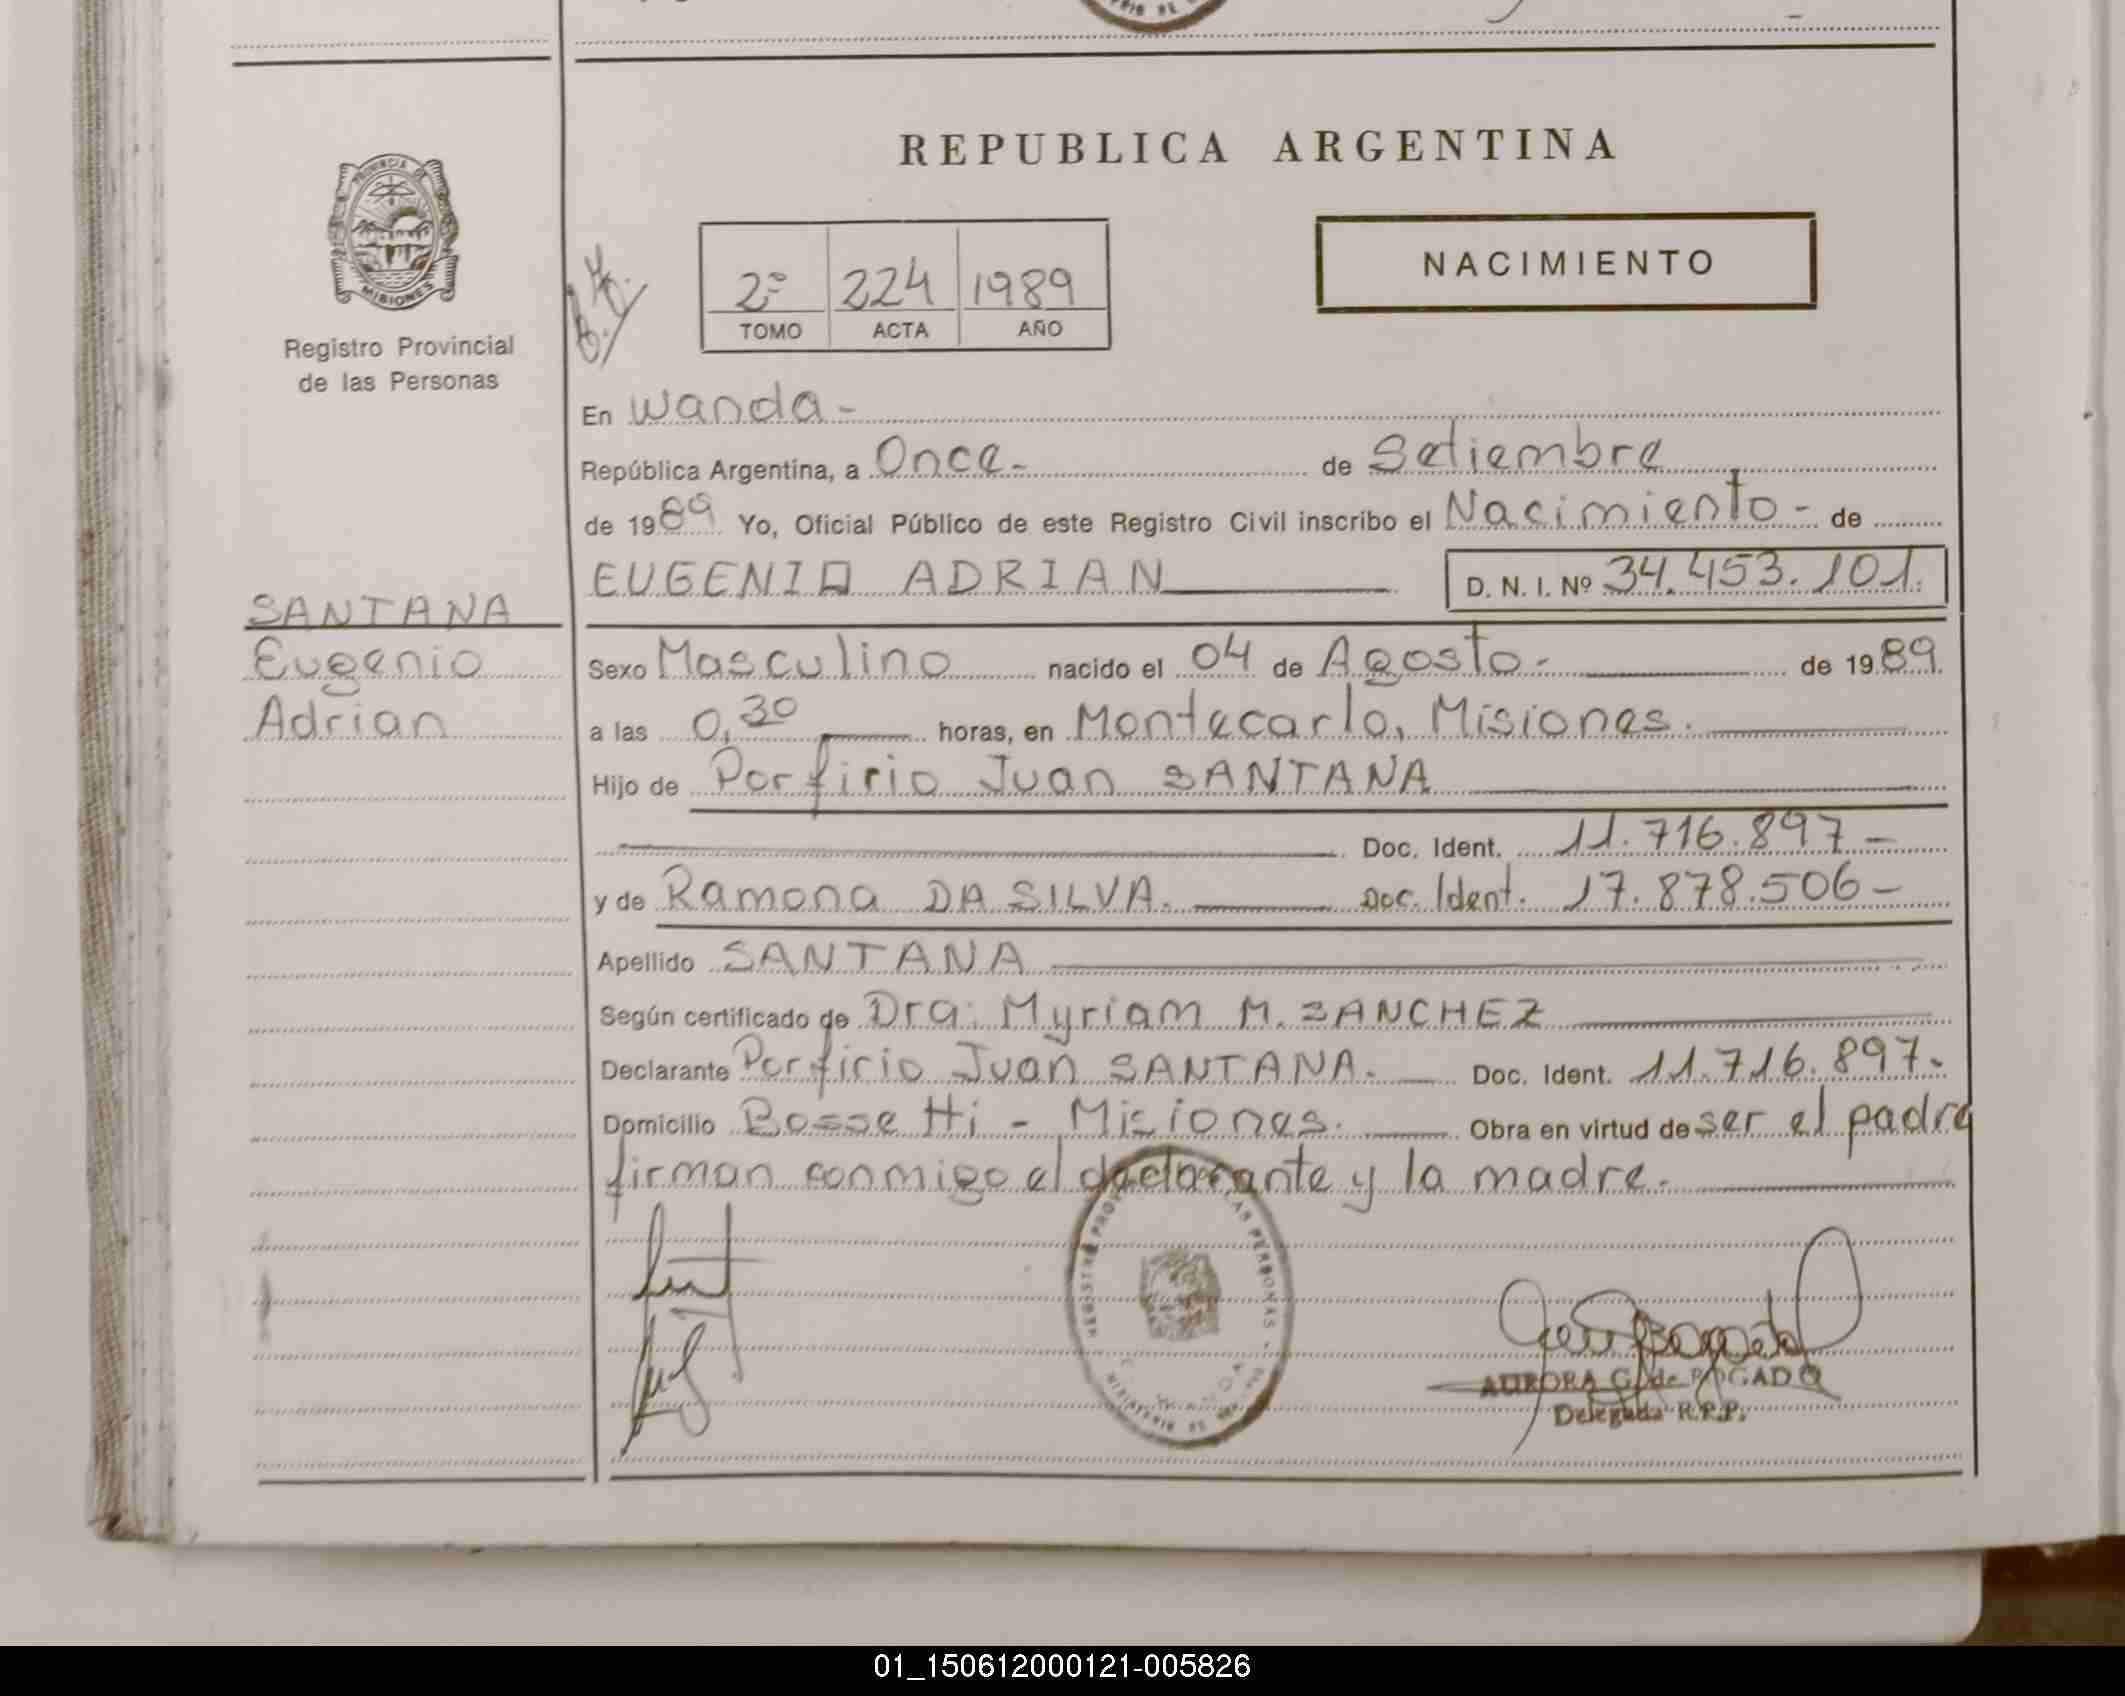 REPUBLICA ARGENTINA
PROVINCIA DE
MISIONES
Registro Provincial
de las Personas
2º 224 1989
TOMO ACTA AÑO
NACIMIENTO
En Wanda-
República Argentina, a Once- de Setiembre
de 1989 Yo, Oficial Público de este Registro Civil inscribo el Nacimiento- de
EUGENIO ADRIAN D. N. I. Nº 34.453.101.
SANTANA
Eugenio
Adrian
Sexo Masculino nacido el 04 de Agosto- de 1989.
a las 0,30 horas, en Montecarlo, Misiones.
Hijo de Porfirio Juan SANTANA
Doc. Ident. 11.716.897-
y de Ramona DA SILVA. Doc. Ident. 17.878.506-
Apellido SANTANA
Según certificado de Dra: Myriam M. SANCHEZ
Declarante Porfirio Juan SANTANA. Doc. Ident. 11.716.897-
Domicilio Bossetti - Misiones. Obra en virtud de ser el padre
firman conmigo el declarante y la madre.
AURORA G. de POGADO
Delegada R.P.P.
01_150612000121-005826